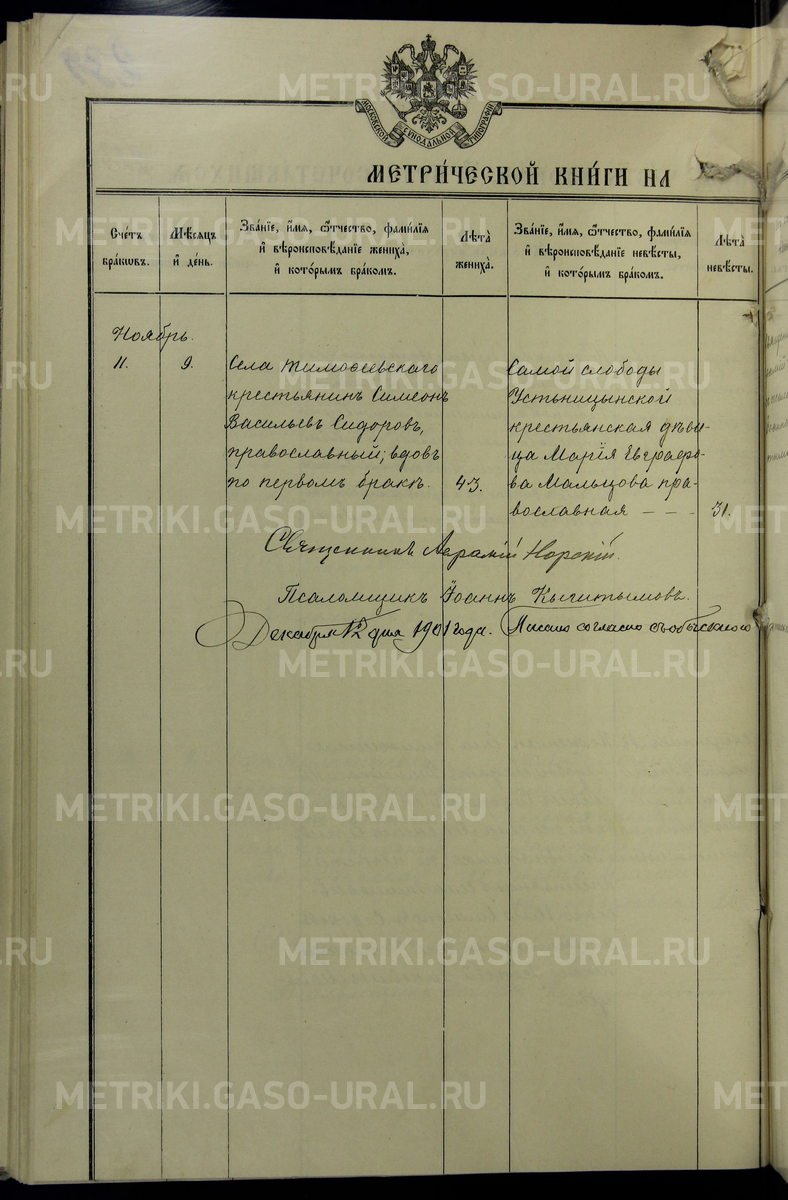 МОСКОВСКОЙ СѴНОДАЛЬНОЙ ТИПОГРАФІИ
МЕТРИ́ЧЕСКОЙ КНИ́ГИ НА
Сче́тъ бра́кѡвъ.
Мѣ́сяцъ и҆ де́нь.
Зва́нїе, и҆́мя, ѻ҆́тчество, фами́лїя
и҆ вѣроисповѣ́данїе жениха̀,
и҆ кото́рымъ бра́комъ.
Лѣта̀ жениха̀.
Зва́нїе, и҆́мя, ѻ҆́тчество, фами́лїя
и҆ вѣроисповѣ́данїе невѣ́сты,
и҆ кото́рымъ бра́комъ.
Лѣта̀ невѣ́сты.
Ноябрь.
11.
9.
Села Тимоѳеевскаго
крестьянинъ Симеонъ
Васильевъ Сидоровъ,
православный; вдовъ
по первомъ бракѣ.
43.
Самой слободы
Устьницынской
крестьянская дѣви-
ца Марія Евграфо-
ва Мальцова пра-
вославная – – –
31.
Священникъ Аврамій Норскій.
Псаломщикъ Іоаннъ Кыштымовъ.
Декабря 12 дня 1901 года.
Писано согласно съ обыскного
METRIKI.GASO-URAL.RU